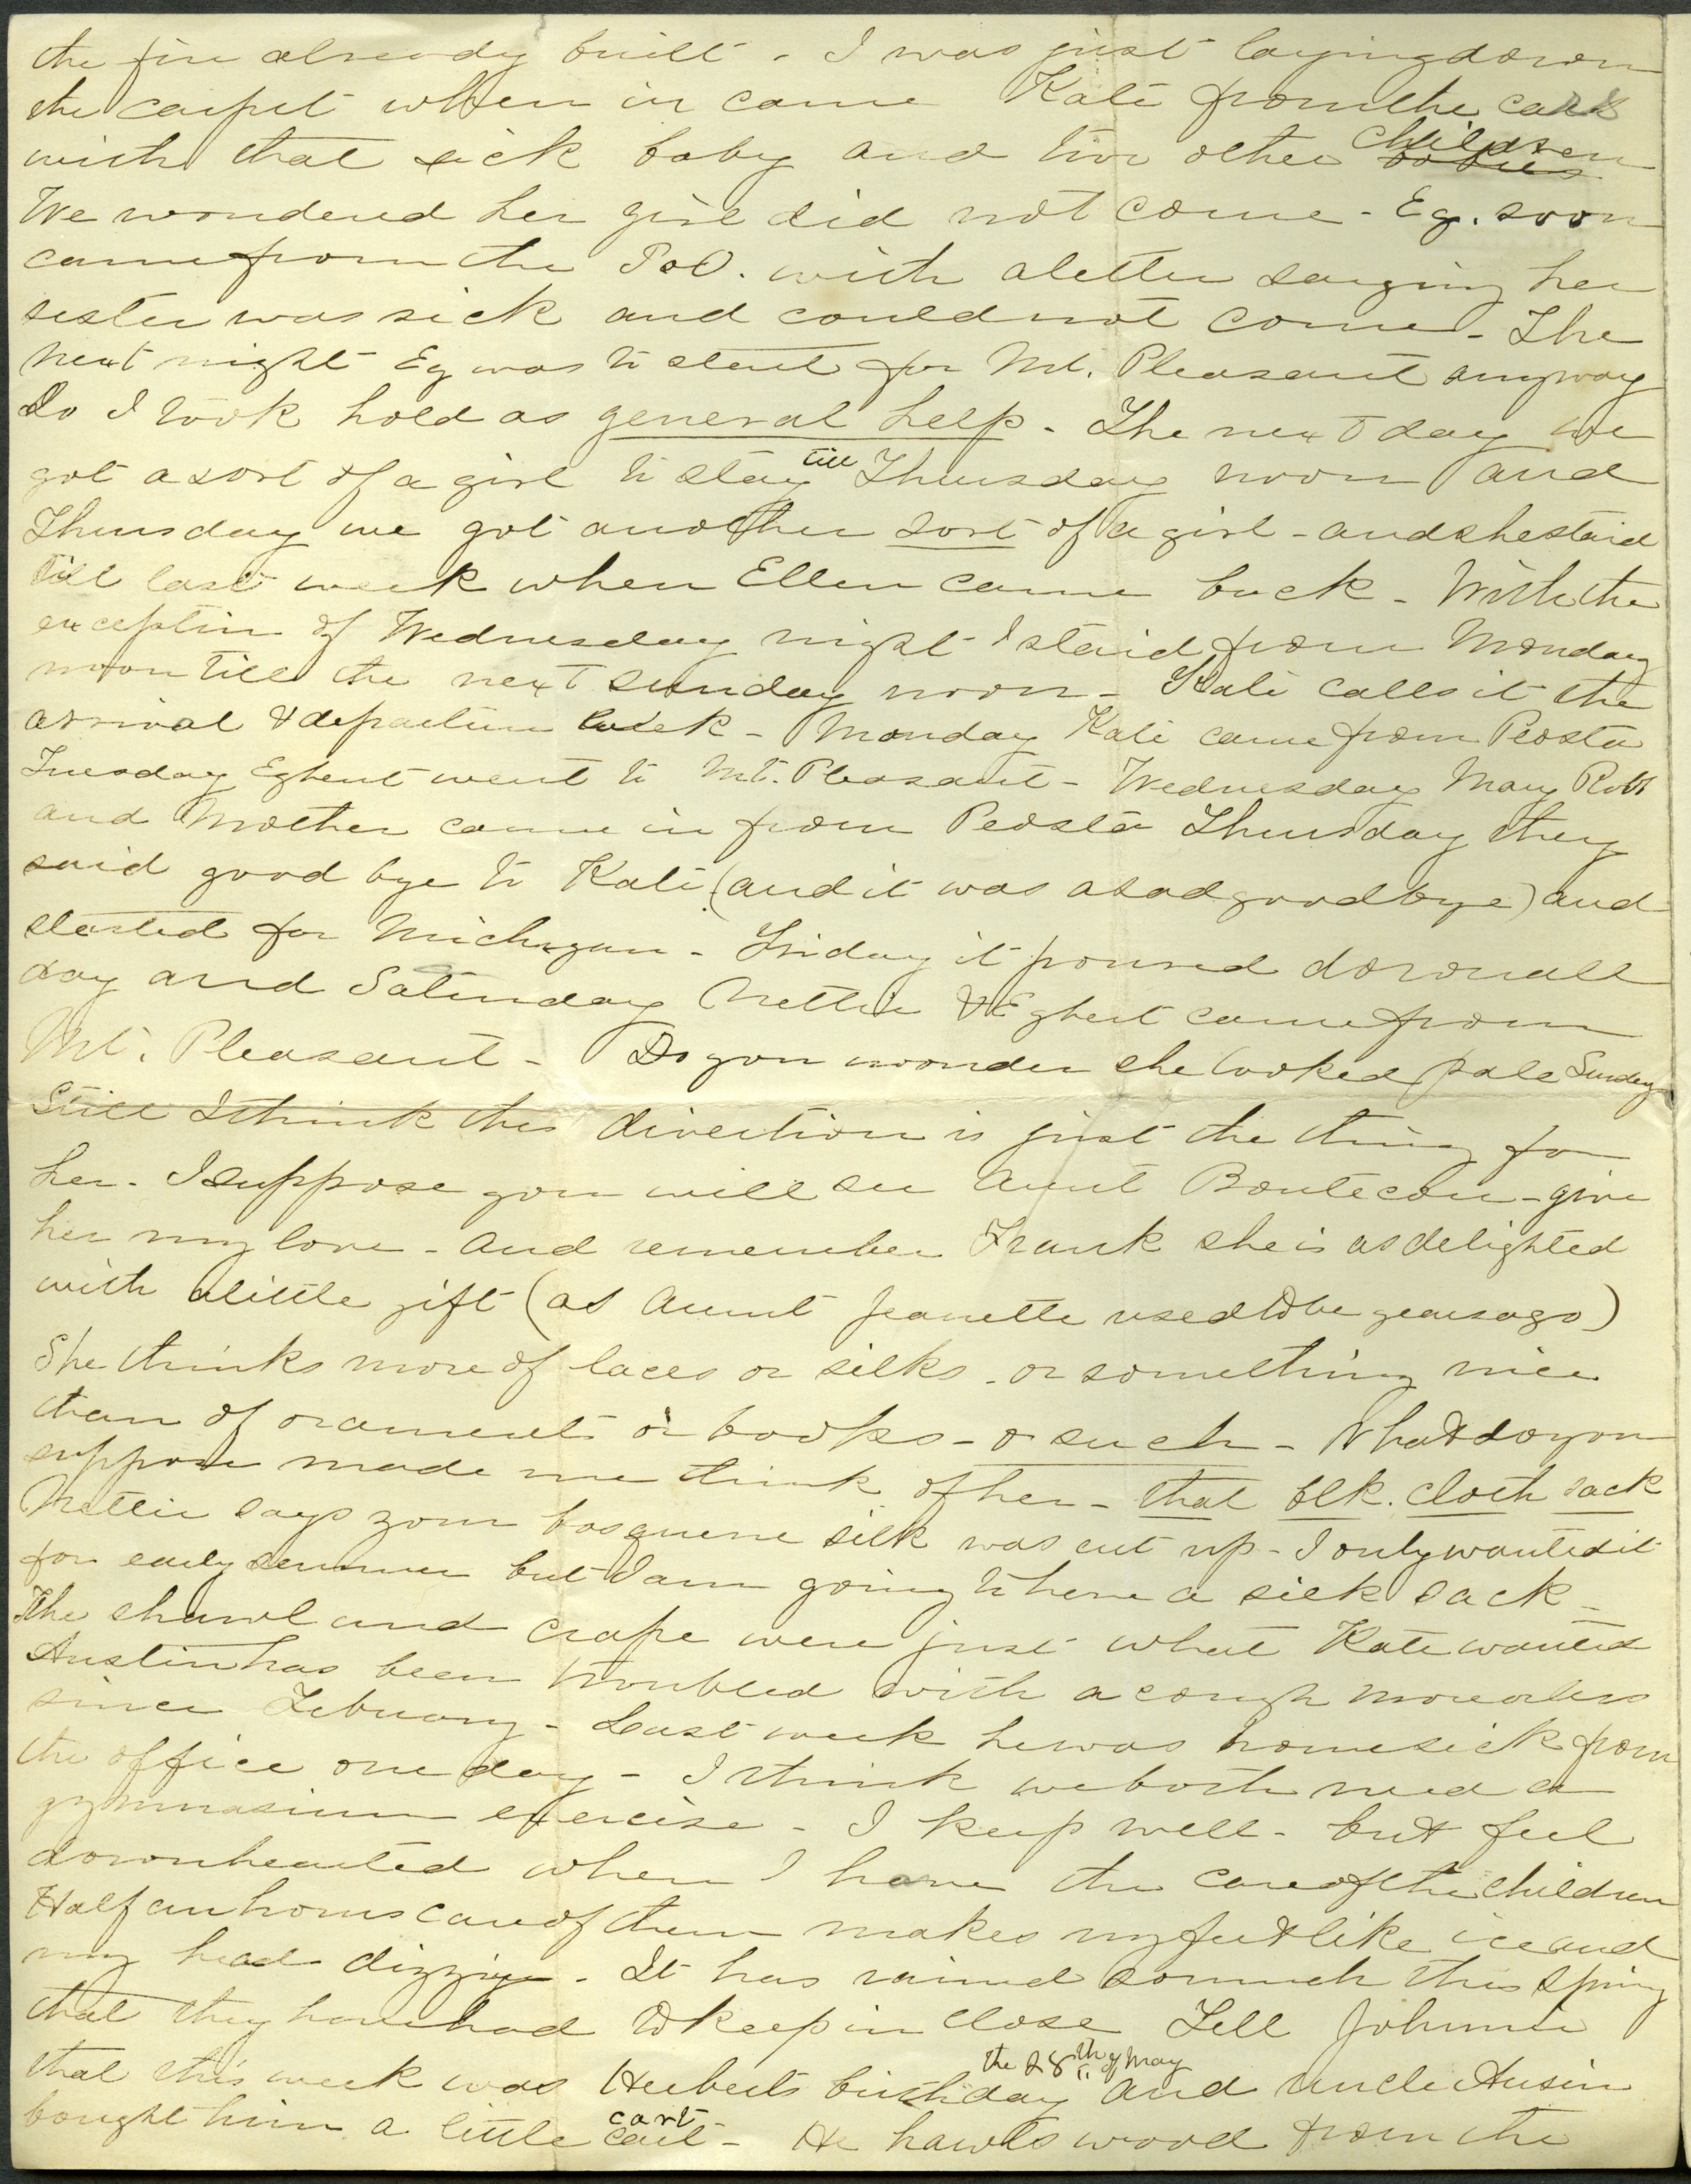 the fire already built - I was just laying down
the carpet when in came Kate from the cars
with that sick baby and two other children
We wondered her girl did not come - Eg. soon
came from the P.O. with a letter saying her
sister was sick and could not come - The
next night Eg was to start for Mt. Pleasant anyway
So I took hold as general help - The next day we
got a sort of a girl to stay till Thursday noon and
Thursday we got another sort of a girl - and she staid
till last week when Ellen came back - With the
exception of Wednesday night I staid from Monday
noon till the next Sunday noon - Kate calls it the
arrival & departure week - Monday Kate came from Peosta
Tuesday Egbert went to Mt. Pleasant - Wednesday Mary Robt
and Mother came in from Peosta Thursday they
said good bye to Kate (and it was a sad good bye) and
started for Michigan - Friday it poured down all
day and Saturday Nettie & Egbert came from
Mt. Pleasant - Do you wonder she looked pale Sunday
Still I think this direction is just the thing for
her - I suppose you will see Aunt Boutecou - give
her my love - And remember Frank she is as delighted
with a little gift (as Aunt Jeanette used to be years ago)
She thinks more of laces or silks - or something nice
than of oraments or books - or such - What do you
suppose made me think of her - that blk. cloth sack
Nettie says your basquene silk was cut up - I only wanted it
for early summer but I am going to have a silk sack -
The shawl and crape were just what Kate wanted
Austin has been troubled with a cough more or less
since February - Last week he was home sick from
the office one day - I think we both need a
gymnasium exercise - I keep well - but feel
downhearted when I have the care of the children
Half an hours care of them makes my feet like ice and
my head dizzy - It has rained so much this spring
that they have had to keep in close Tell Johnnie
that this week was Herberts birthday the 28th of May and uncle Ausin
bought him a little cart cart - He hawls wood from the